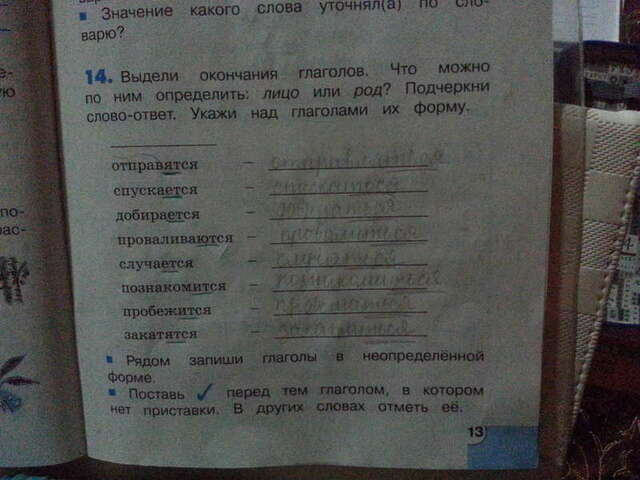 ▪ Значение какого слова уточнял(а) по сло-
варю?
14. Выдели окончания глаголов. Что можно
по ним определить: лицо или род? Подчеркни
слово-ответ. Укажи над глаголами их форму.
отправятся – отправляться
спускается – спускаться
добирается –
проваливаются – провалиться
случается – случаться
познакомится – познакомиться
пробежится –
закатятся –
▪ Рядом запиши глаголы в неопределённой
форме.
▪ Поставь ✓ перед тем глаголом, в котором
нет приставки. В других словах отметь её.
13